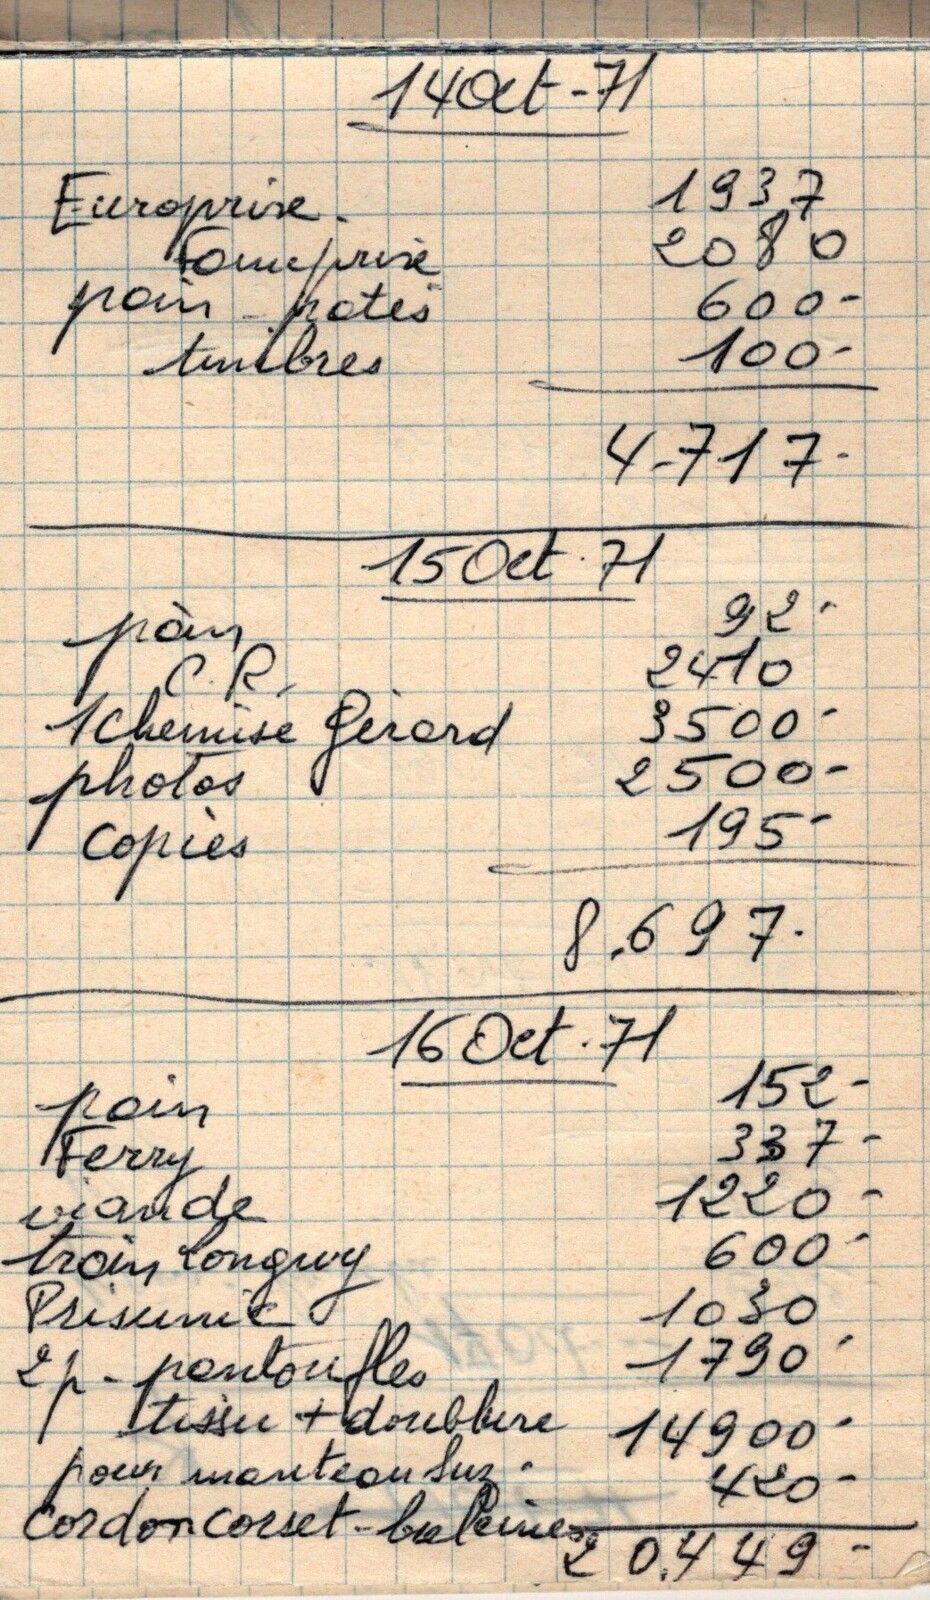 14 Oct - 71
Europrise - 1937
Fameprise 2080
pain - patés 600 -
timbres 100 -
4.717 -
15 Oct. 71
pain 92 -
C.R. 2410
1 Chemise Gérard 3500 -
photos 2500 -
copies 195 -
8.697.
16 Oct. 71
pain 152 -
Ferry 337 -
viande 1220 -
train Longwy 600 -
Prisunic 1030
2 p - pantoufles 1790 -
tissu + doublure 14900 -
pour manteau Suz. 420 -
cordon corset - baleines
20.449 -